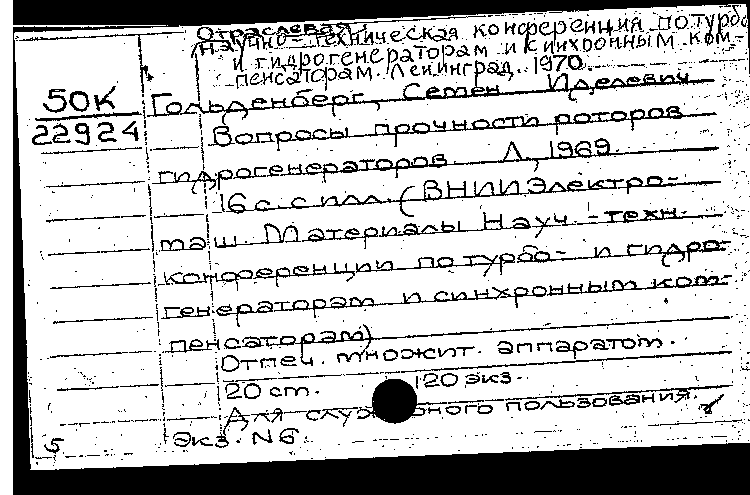 Отраслевая
научно-техническая конференция по турбо-
и гидрогенераторам и синхронным ком-
пенсаторам. Ленинград. 1970.
50К
22924
Гольденберг, Семен Иделевич
Вопросы прочности роторов
гидрогенераторов. Л., 1969.
16 с. с илл. (ВНИИЭлектро-
маш. Материалы Науч.-техн.
конференции по турбо- и гидро-
генераторам и синхронным ком-
пенсаторам)
Отпеч. множит. аппаратом.
20 ст. 120 экз.
Для пользования.
5 Экз. N6